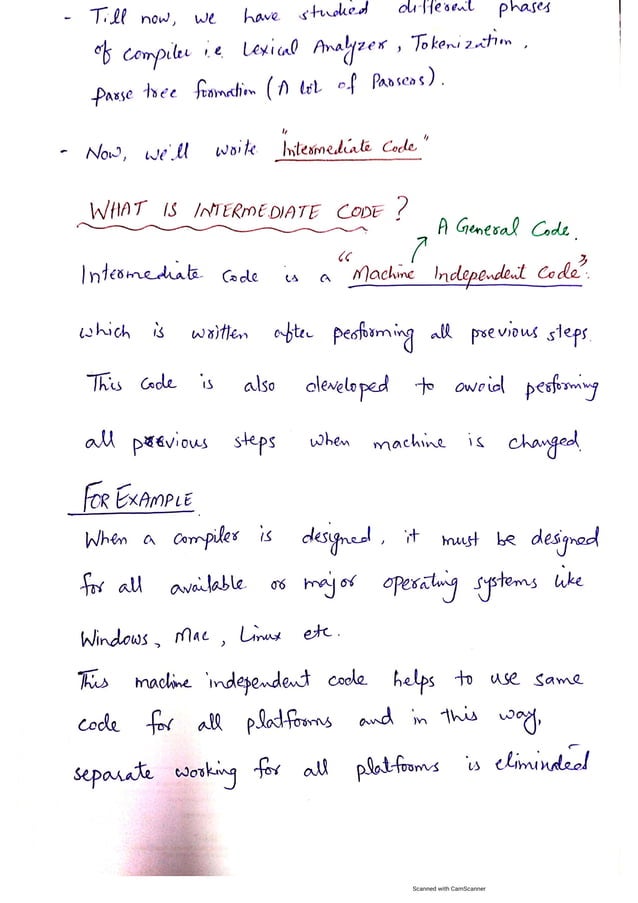 - Till now, we have studied different phases
of compiler i.e. Lexical Analyzer, Tokenization,
Parse tree formation (A lot of Parsers).
- Now, we'll write "Intermediate Code"
WHAT IS INTERMEDIATE CODE?
A General Code.
Intermediate Code is a "Machine Independent Code".
which is written after performing all previous steps.
This code is also developed to avoid performing
all previous steps when machine is changed.
FOR EXAMPLE
When a compiler is designed, it must be designed
for all available or major operating systems like
Windows, Mac, Linux etc.
This machine independent code helps to use same
code for all platforms and in this way,
separate working for all platforms is eliminded
Scanned with CamScanner